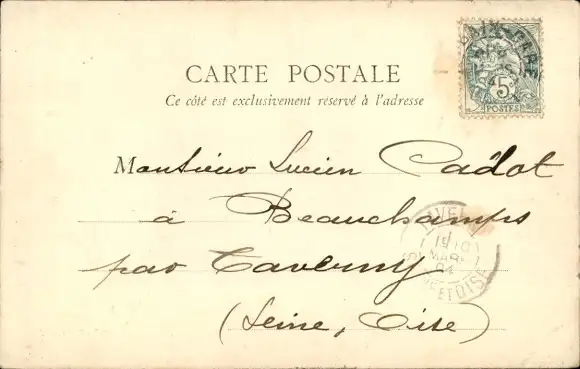 CARTE POSTALE
Ce côté est exclusivement réservé à l'adresse
5c
POSTES
Monsieur Lucien Cadot
à Beauchamps
par Taverny
(Seine, Oise)
MARS
04
ET OISE